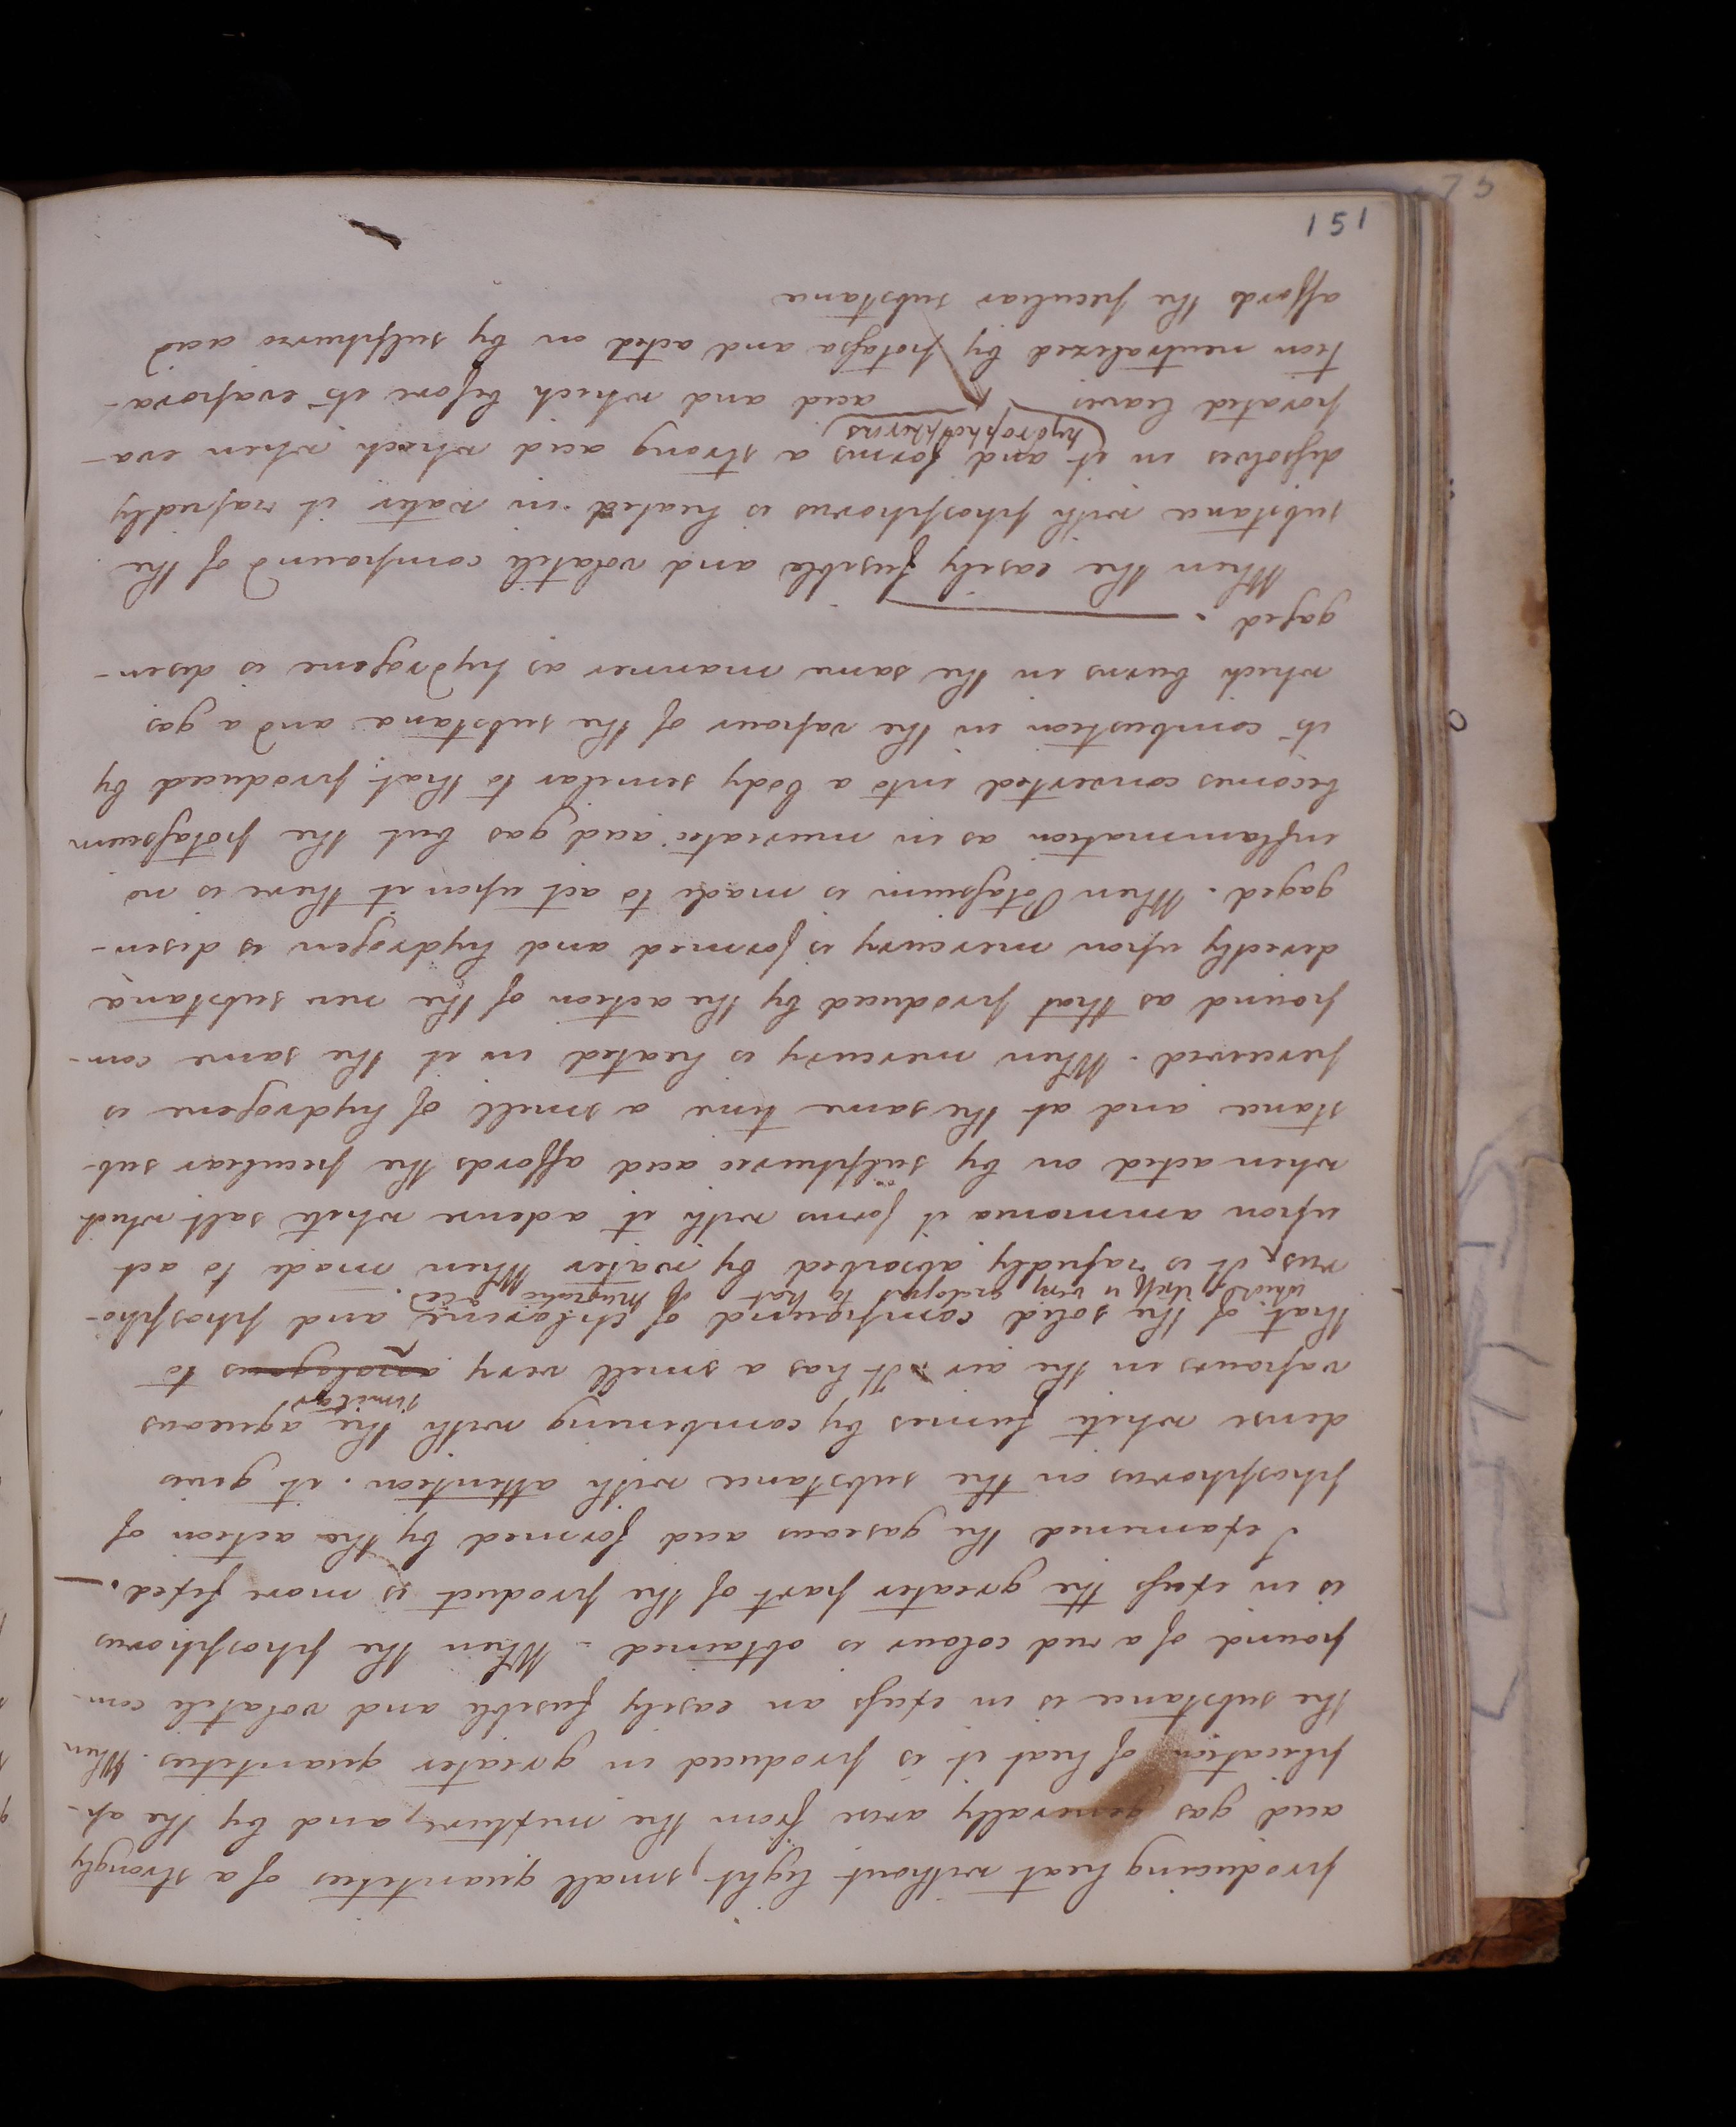 producing heat without light, small quantities of a strongly
acid gas generally arise from the mixture, and by the ap-
plication of heat it is produced in greater quantities. When
the substance is in excess an easily fusible and volatile com-
pound of a red colour is obtained - When the phosphorus
is in excess the greater part of the product is more fixed. —
I examined the gaseous acid formed by the action of
phosphorus on the substance with attention. it gives
dense white fumes by combining with the aqueous
similar
vapours in the air. It has a smell very analagous to
that of the solid compound of chlorine and phospho-
which itself is very analogous to that of muriatic acid
rus, it is rapidly absorbed by water When made to act
upon ammonia it forms with it a dense white salt which
when acted on by sulphuric acid affords the peculiar sub-
stance and at the same time a smell of hydrogene is
perceived. When mercury is heated in it the same com-
pound as that produced by the action of the new substance
directly upon mercury is formed and hydrogen is disen-
gaged. When Potassium is made to act upon it there is no
inflammation as in muriatic acid gas but the potassium
becomes converted into a body similar to that produced by
its combustion in the vapour of the substance and a gas
which burns in the same manner as hydrogene is disen-
gaged. —
When the easily fusible and volatile compound of the
substance with phosphorus is heated in water it rapidly
dissolves in it and forms a strong acid which when eva-
(hydrophosphorus)
porated leaves acid and which before its evapora-
tion neutralized by potassa and acted on by sulphuric acid
affords the peculiar substance
151
75